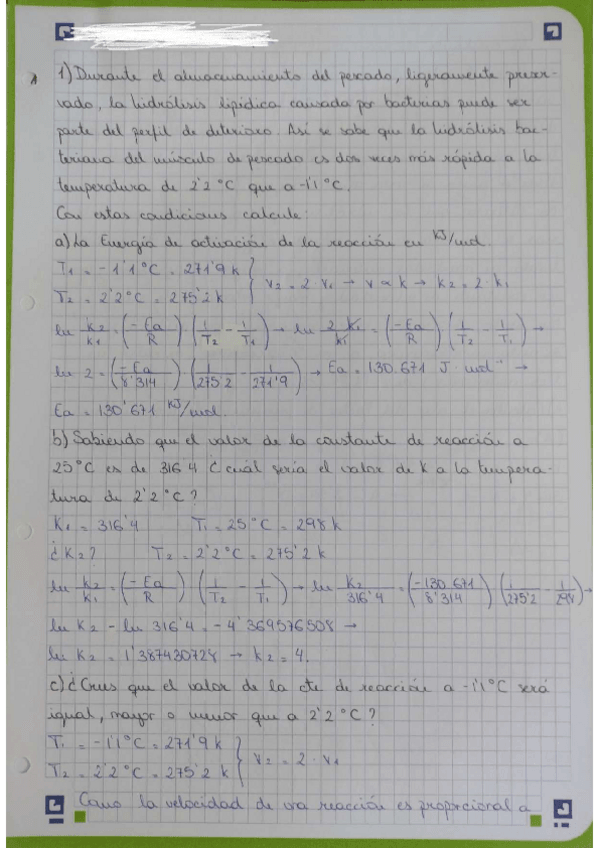 1) Durante el almacenamiento del pescado, ligeramente preser-
vado, la hidrólisis lipídica causada por bacterias puede ser
parte del perfil de deterioro. Así se sabe que la hidrólisis bac-
teriana del músculo de pescado es dos veces más rápida a la
temperatura de 2'2 °C que a -1'1 °C.
Con estas condiciones calcule:
a) La Energía de activación de la reacción en KJ/mol.
T1 = -1'1 °C = 271'9 k
T2 = 2'2 °C = 275'2 k } v2 = 2 · v1 → v ∝ k → k2 = 2 · k1
ln k2/k1 = (-Ea/R) · (1/T2 - 1/T1) → ln 2 k1/k1 = (-Ea/R) (1/T2 - 1/T1) →
ln 2 = (-Ea/8'314) · (1/275'2 - 1/271'9) → Ea = 130.671 J · mol⁻¹ →
Ea = 130'671 KJ/mol.
b) Sabiendo que el valor de la constante de reacción a
25 °C es de 316'4 ¿cuál sería el valor de k a la tempera-
tura de 2'2 °C?
K1 = 316'4 T1 = 25 °C = 298 k
¿K2? T2 = 2'2 °C = 275'2 k
ln k2/k1 = (-Ea/R) · (1/T2 - 1/T1) → ln k2/316'4 = (-130.671/8'314) · (1/275'2 - 1/298) →
ln k2 - ln 316'4 = -4'369576508 →
ln k2 = 1'387430728 → k2 = 4.
c) ¿Crees que el valor de la cte de reacción a -1'1 °C será
igual, mayor o menor que a 2'2 °C?
T1 = -1'1 °C = 271'9 k
T2 = 2'2 °C = 275'2 k } v2 = 2 · v1
Como la velocidad de una reacción es proporcional a